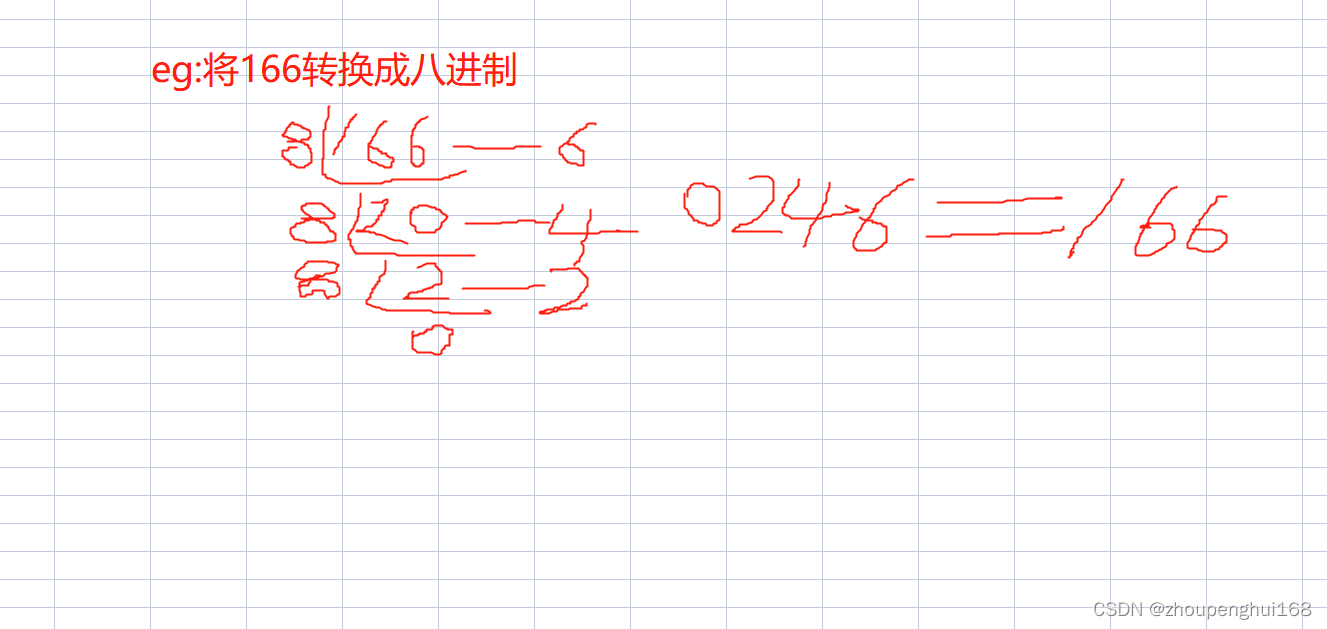 eg:将166转换成八进制
8 166 — 6
8 20 — 4
0246 = 166
8 2 — 2
0
CSDN @zhoupenghui168